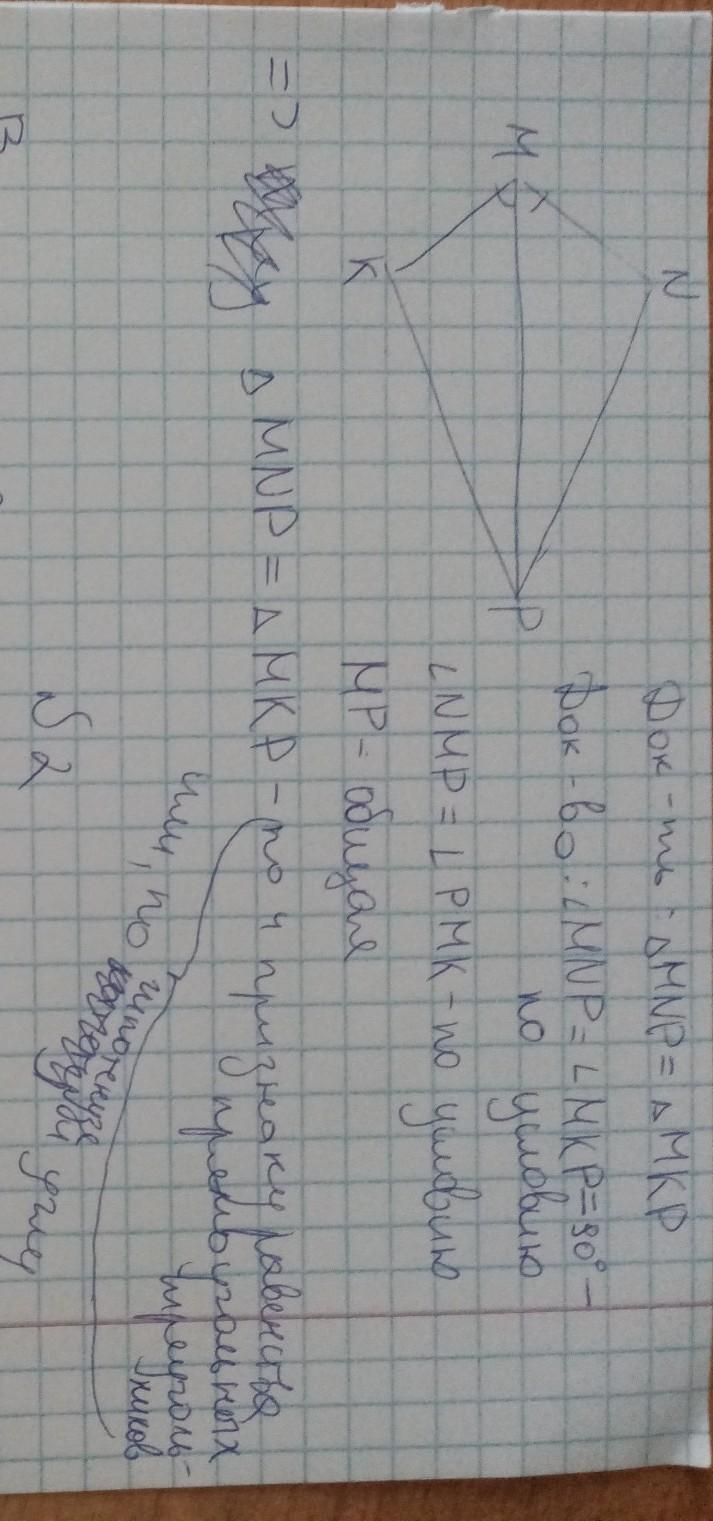 Док-ть: △MNP = △MKP
Док-во: ∠MNP = ∠MKP = 90° –
по условию
∠NMP = ∠PMK – по условию
MP – общая
N
M
P
K
=> △ MNP = △ MKP – по 4 признаку равенства
прямоугольных
треуголь-
ников
или, по гипотенузе
углу
N 2
B